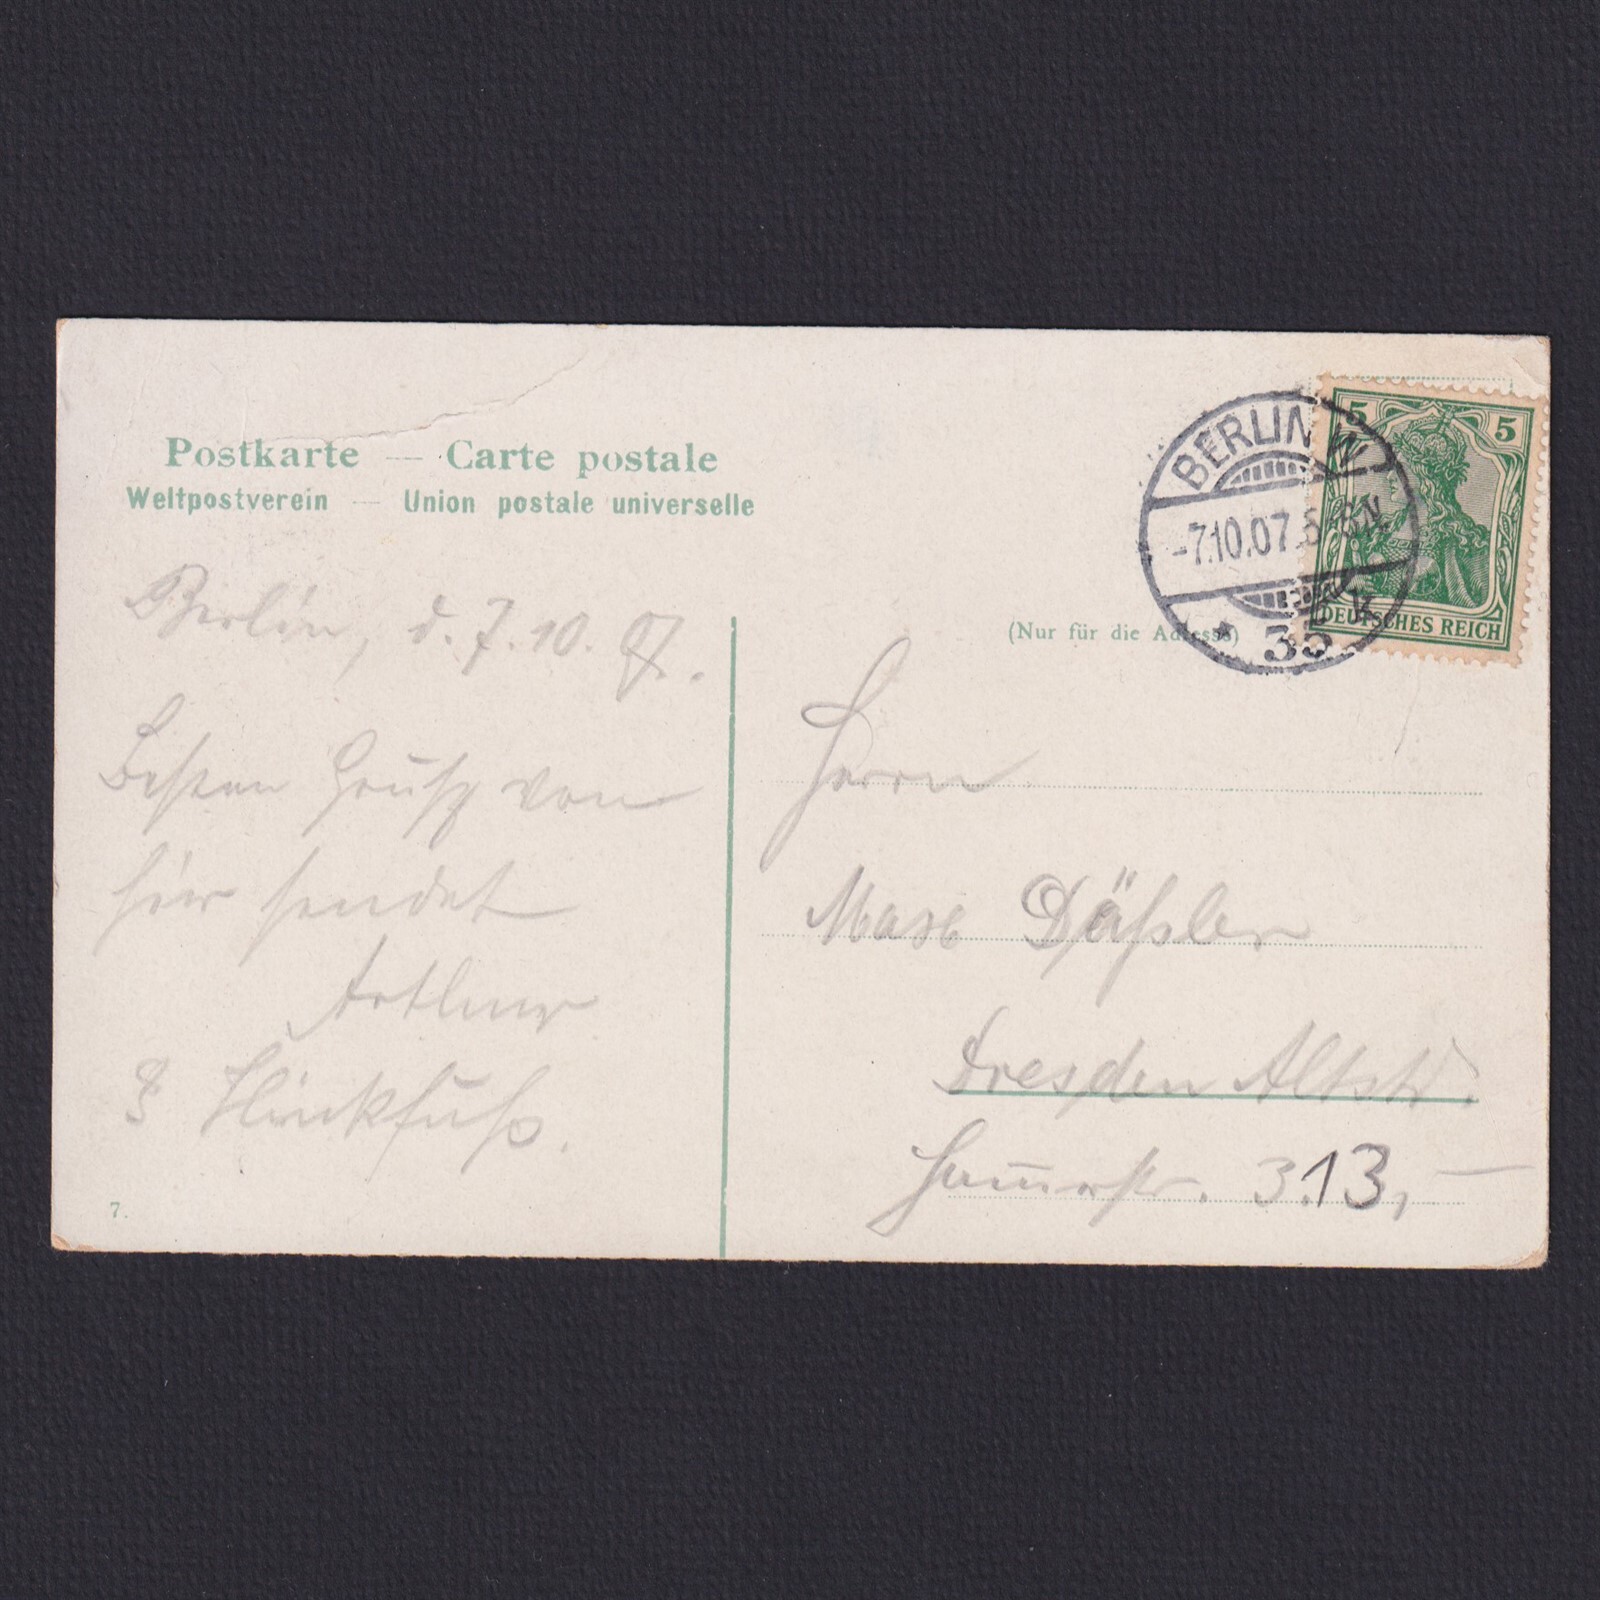 Postkarte — Carte postale
Weltpostverein — Union postale universelle
Berlin, d. 7. 10. 07.
Besten Gruß von
hier sendet
Arthur
& Hinkfuß.
7.
BERLIN W.
-7.10.07.5-6N.
* 35 k
5 5
DEUTSCHES REICH
(Nur für die Adresse)
Herrn
Max Däßler
Dresden Altst.
313,